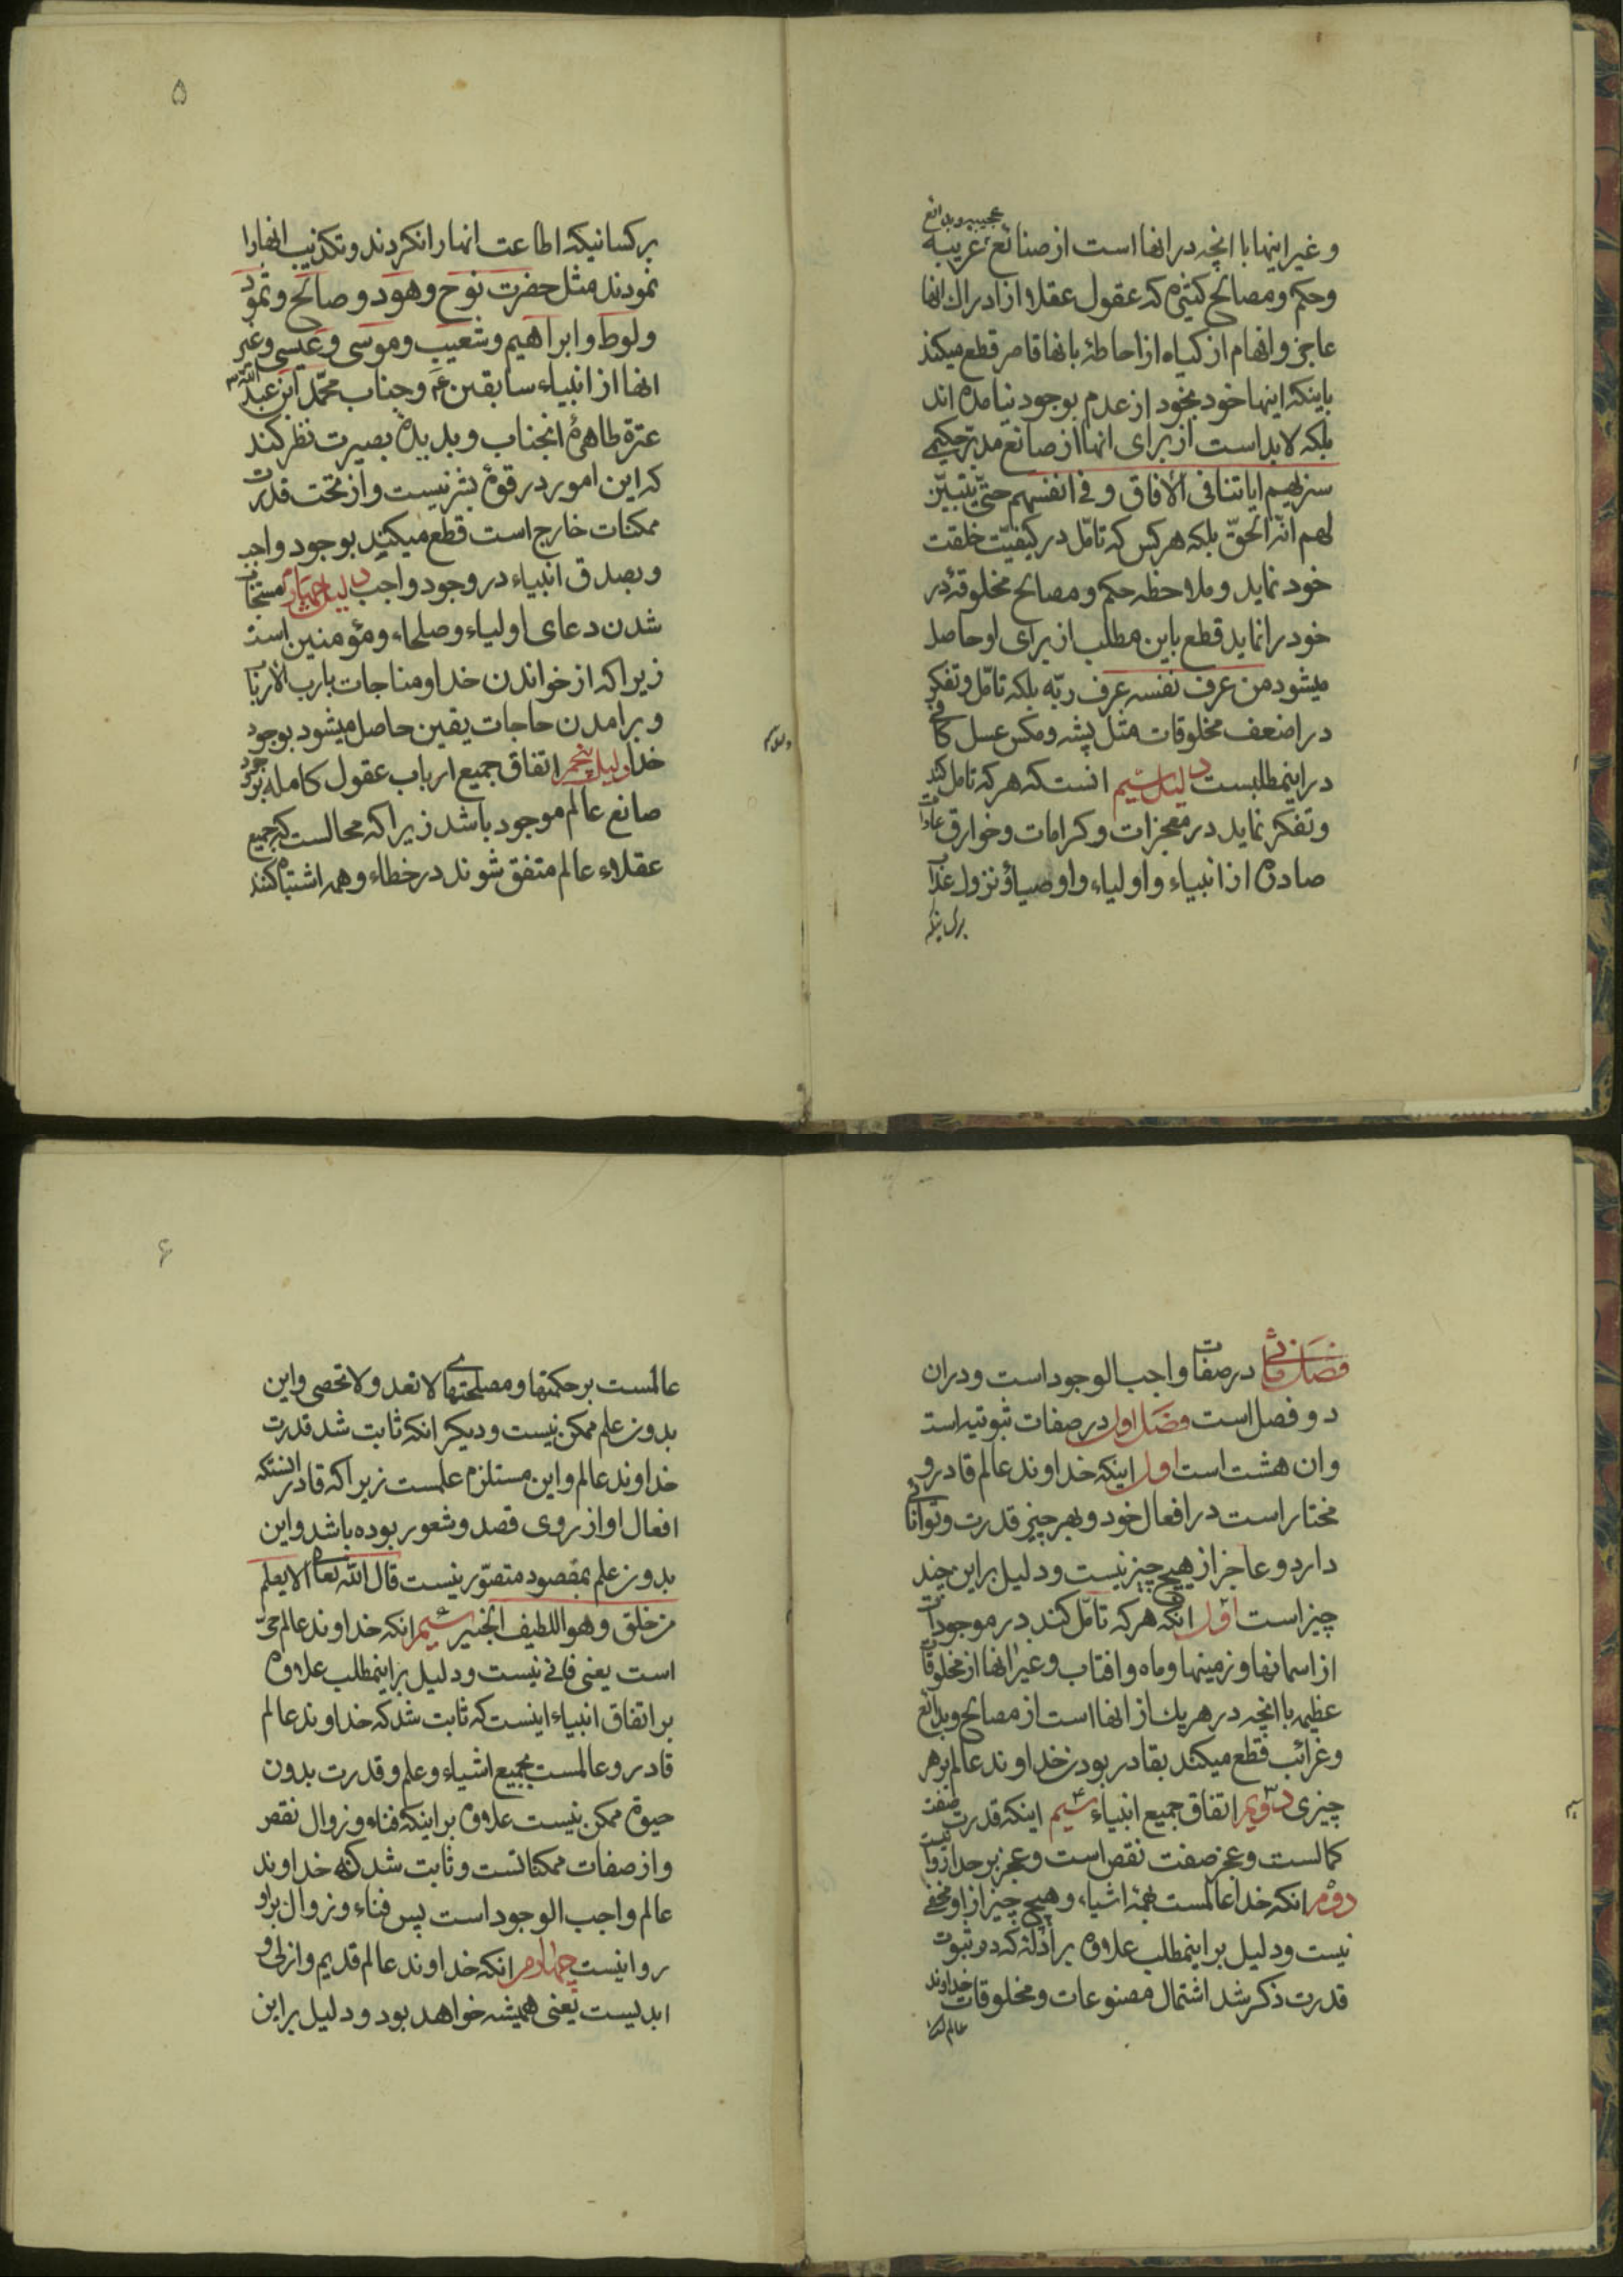 عجیبه و بدائع
و غیر اینها با انچه در انها است از صنائع غریبه
و حکم و مصالح کثیره که عقول عقلا از ادراك انها
عاجز و افهام ازکیاء از احاطهٔ بانها قاصر قطع میکند
باینکه اینها خود بخود از عدم بوجود نیامده اند
بلکه لابد است از برای انها از صانع مدبّر حکیمی
سنریهم ایاتنا فی الأفاق و فی انفسهم حتّی یتبیّن
لهم انّه الحقّ بلکه هر کس که تامّل در کیفیّت خلقت
خود نماید و ملاحظه حکم و مصالح مخلوقهٔ در
خود را نماید قطع باین مطلب از برای او حاصل
میشود من عرف نفسه عرف ربّه بلکه تامّل و تفکر
در اضعف مخلوقات مثل پشه و مکس عسل کافی
در اینمطلبست دلیل سیم انست که هر که تامل کند
و تفکر نماید در معجزات و کرامات و خوارق عادات
صادره از انبیاء و اولیاء و اوصیاء و نزول عذاب
۵
بر کسانیکه اطاعت انها را نکردند و تکذیب انها را
نمودند مثل حضرت نوح و هود و صالح و ثمود
و لوط و ابراهیم و شعیب و موسی و عیسی و غیر
انها از انبیاء سابقین ع و جناب محمّد ابن عبد الله
عترة طاهرهٔ انجناب و بدیدهٔ بصیرت نظر کند
که این امور در قوهٔ بشر نیست و از تحت قدرت
ممکنات خارج است قطع میکند بوجود واجب
و بصدق انبیاء در وجود واجب دلیل چهارم مستجاب
شدن دعای اولیاء و صلحاء و مؤمنین است
زیرا که از خواندن خدا و مناجات بارب الأرباب
و برامدن حاجات یقین حاصل میشود بوجود
خدا دلیل پنجم اتفاق جمیع ارباب عقول کامله بوجود
صانع عالم موجود باشد زیرا که محالست که جمیع
عقلاء عالم متفق شوند در خطاء و همه اشتباه کنند
فصل ثانی در صفات واجب الوجود است و دران
دو فصل است فصل اول در صفات ثبوتیه است
وان هشت است اول اینکه خداوند عالم قادر و
مختار است در افعال خود و بهر چیز قدرت و توانائی
دارد و عاجز از هیچ چیز نیست و دلیل بر این چند
چیز است اوّل انکه هر که تامّل کند در موجودات
از اسمانها و زمینها و ماه و افتاب و غیر انها از مخلوقات
عظیمه با انچه در هر یك از انها است از مصالح و بدائع
و غرائب قطع میکند بقادر بودن خداوند عالم بر هر
چیزی دویّم اتفاق جمیع انبیاء سیم اینکه قدرت صفت
کمالست و عجز صفت نقص است و عجز بر خدا روا نیست
دوم انکه خدا عالمست بهمهٔ اشیاء و هیچ چیز از او مخفی
نیست و دلیل بر اینمطلب علاوه بر ادلهٔ که در ثبوت
قدرت ذکر شد اشتمال مصنوعات و مخلوقات خداوند
۶
عالمست بر حکمتها و مصلحتهای لا تعد و لا تحصی و این
بدون علم ممکن نیست و دیکر انکه ثابت شد قدرت
خداوند عالم و این مستلزم علمست زیرا که قادر انستکه
افعال او از روی قصد و شعور بوده باشد و این
بدون علم بمقصود متصوّر نیست قال الله تعالی الا یعلم
من خلق و هو اللطیف الخبیر سیم انکه خداوند عالم حیّ
است یعنی فانی نیست و دلیل بر اینمطلب علاوه
بر اتفاق انبیاء اینست که ثابت شد که خداوند عالم
قادر و عالمست بجمیع اشیاء و علم و قدرت بدون
حیوة ممکن نیست علاوه بر اینکه فناء و زوال نقص
و از صفات ممکناتست و ثابت شد که خداوند
عالم واجب الوجود است پس فناء و زوال بر او
روا نیست چهارم انکه خداوند عالم قدیم و ازلی و
ابدیست یعنی همیشه خواهد بود و دلیل بر این